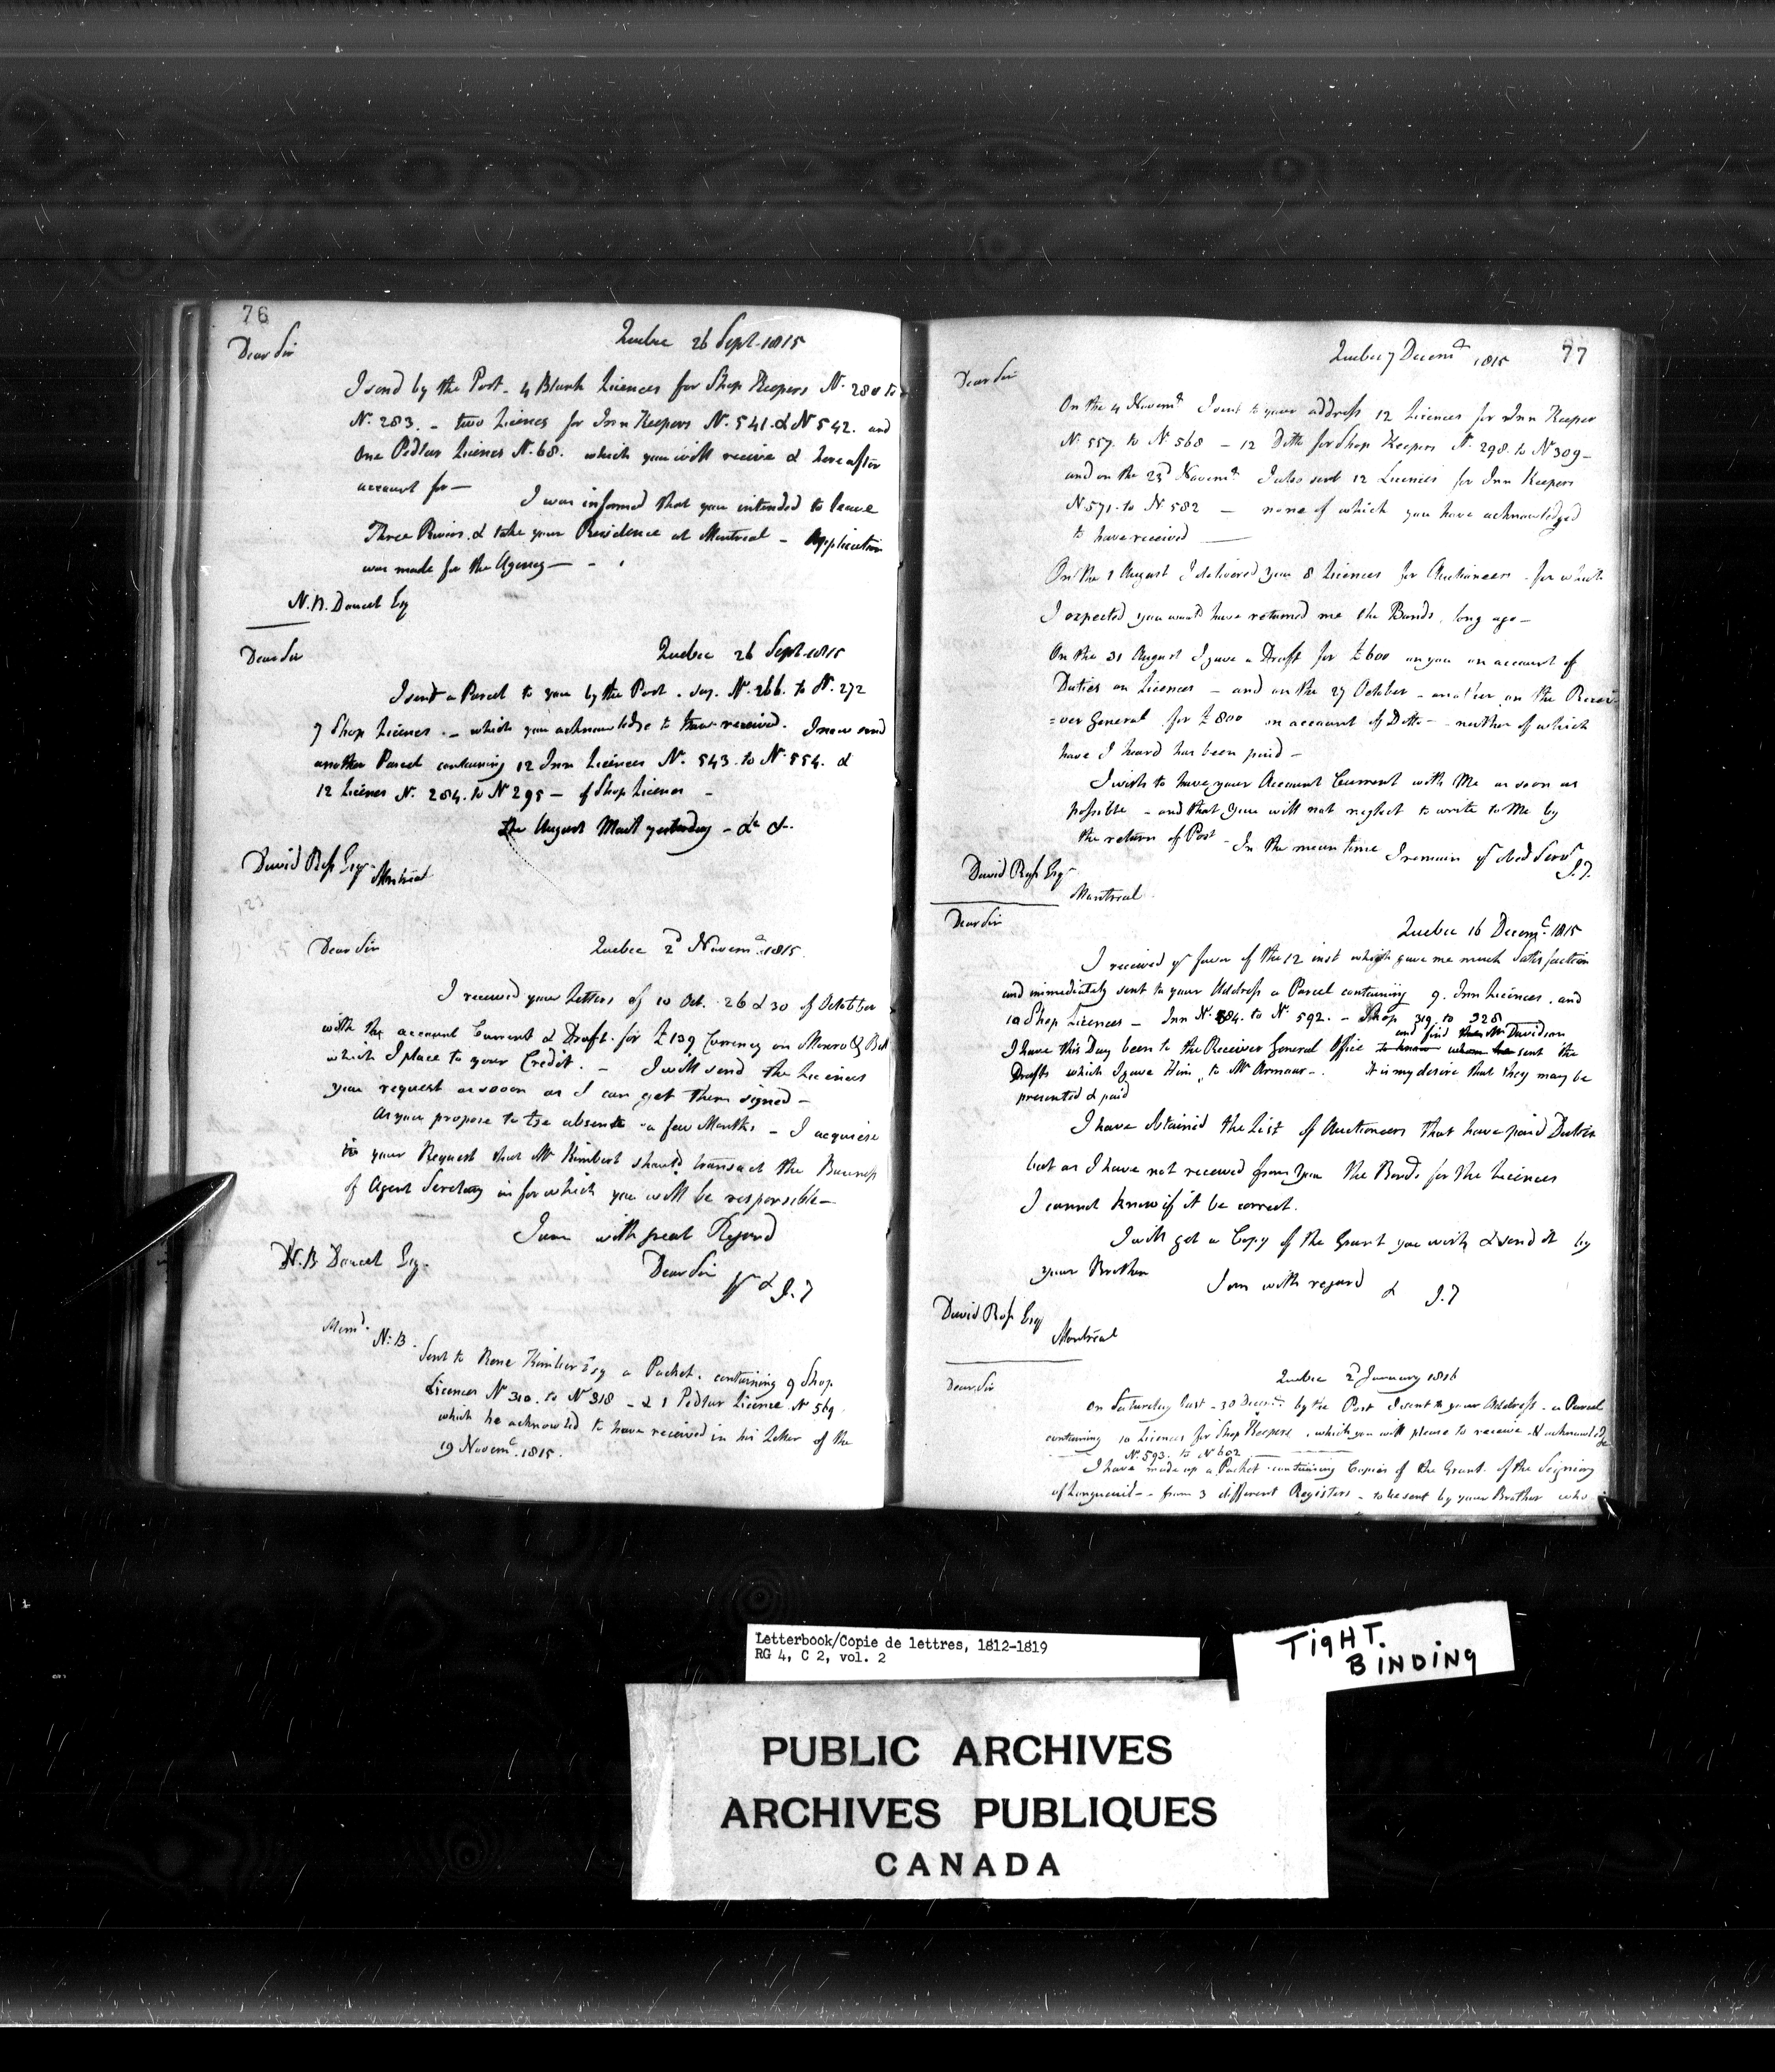 76
Quebec 26 Sept. 1815
Dear Sir
I send by the Post - 4 Blank Licences for Shop Keepers No. 280 to
No. 283. - two Licences for Inn Keepers No. 541 & No 542. and
One Pedlar Licence No. 68. which you will receive & hereafter
account for —
I was informed that you intended to leave
Three Rivers & take your Residence at Montreal - Application
was made for the Agency —
N. B. Doucet Esq
Quebec 26 Sept. 1815
Dear Sir
I sent a Parcel to you by the Post. say. No. 266. to No. 272
7 Shop Licences. - which you acknowledge to have received. I now send
another Parcel containing 12 Inn Licences No. 543. to No 554. &
12 Licences No. 284. to No 295 - of Shop Licences -
August Mail yesterday - &c &.
David Ross Esqr Montreal
123
Dear Sir Quebec 2d Novemr. 1815.
I received your Letters of 10 Oct. 26 & 30 of October
with the account Current & Draft for £139 Currency on Monro & Bell
which I place to your Credit. - I will send the Licences
your request as soon as I can get them signed -
As you propose to be absent a few Months - I acquiesce
in your Request that Mr Kimber should transact the Business
of Agent Secretary for which you will be responsible -
I am with great Regard
Dear Sir yr & J. T
N. B Doucet Esq.
Memd.
N: B. Sent to Rene Kimber Esq a Packet. containing 9 Shop
Licences No 310. to No 318 - & 1 Pedlar Licence No 569
which he acknowled to have received in his Letter of the
19 Novemr. 1815.
77
Quebec 7 Decemr 1815
Dear Sir
On the 4 Novemr I sent to your address 12 Licences for Inn Keeper
No. 557. to No 568 - 12 Ditto for Shop Keepers No. 298. to No 309 -
and on the 23d Novemr. I also sent 12 Licences for Inn Keepers
No 571. to No. 582 - none of which you have acknowledged
to have received —
On the 1 August I delivered you 8 Licences for Auctioneers - for which
I expected you would have returned me the Bonds, long ago -
On the 31 August I gave a Draft for £600 on you on account of
Duties on Licences - and on the 27 October - another on the Recei-
=ver General for £800 on account of Ditto - neither of which
have I heard has been paid -
I wish to have your Account Current with Me as soon as
possible - and that you will not neglect to write to Me by
the return of Post - In the mean time I remain yr Obed Servt
J. T.
David Ross Esqr
Montreal.
Quebec 16 Decemr. 1815
Dear Sir
I received yr favor of the 12 inst which gave me much Satisfaction
and immediately sent to your Address a Parcel containing 9. Inn Licences. and
10 Shop Licences - Inn No. 584. to No. 592. - Shop 319 to 328
and find Mr Davidson
I have this Day been to the Receiver General Office to know whom he sent the
Drafts which I gave Him, to Mr Armour -. It is my desire that they may be
presented & paid
I have obtained the List of Auctioneers that have paid Duties
but as I have not received from you the Bonds for the Licences
I cannot know if it be correct.
I will get a Copy of the Grant you wish & send it by
your Brother I am with regard & J. T
David Ross Esq
Montreal
Quebec 2d January 1816
Dear Sir
On Saturday last - 30 Decemr. by the Post I sent to your Address - a Parcel
containing 10 Licences for Shop Keepers, which you will please to receive & acknowledge
No. 593. to No 602
I have made up a Packet - containing Copies of the Grant of the Seigniory
of Longueuil - from 3 different Registers - to be sent by your Brother who
Letterbook/Copie de lettres, 1812-1819
RG 4, C 2, vol. 2
TIGHT.
BINDING
PUBLIC ARCHIVES
ARCHIVES PUBLIQUES
CANADA